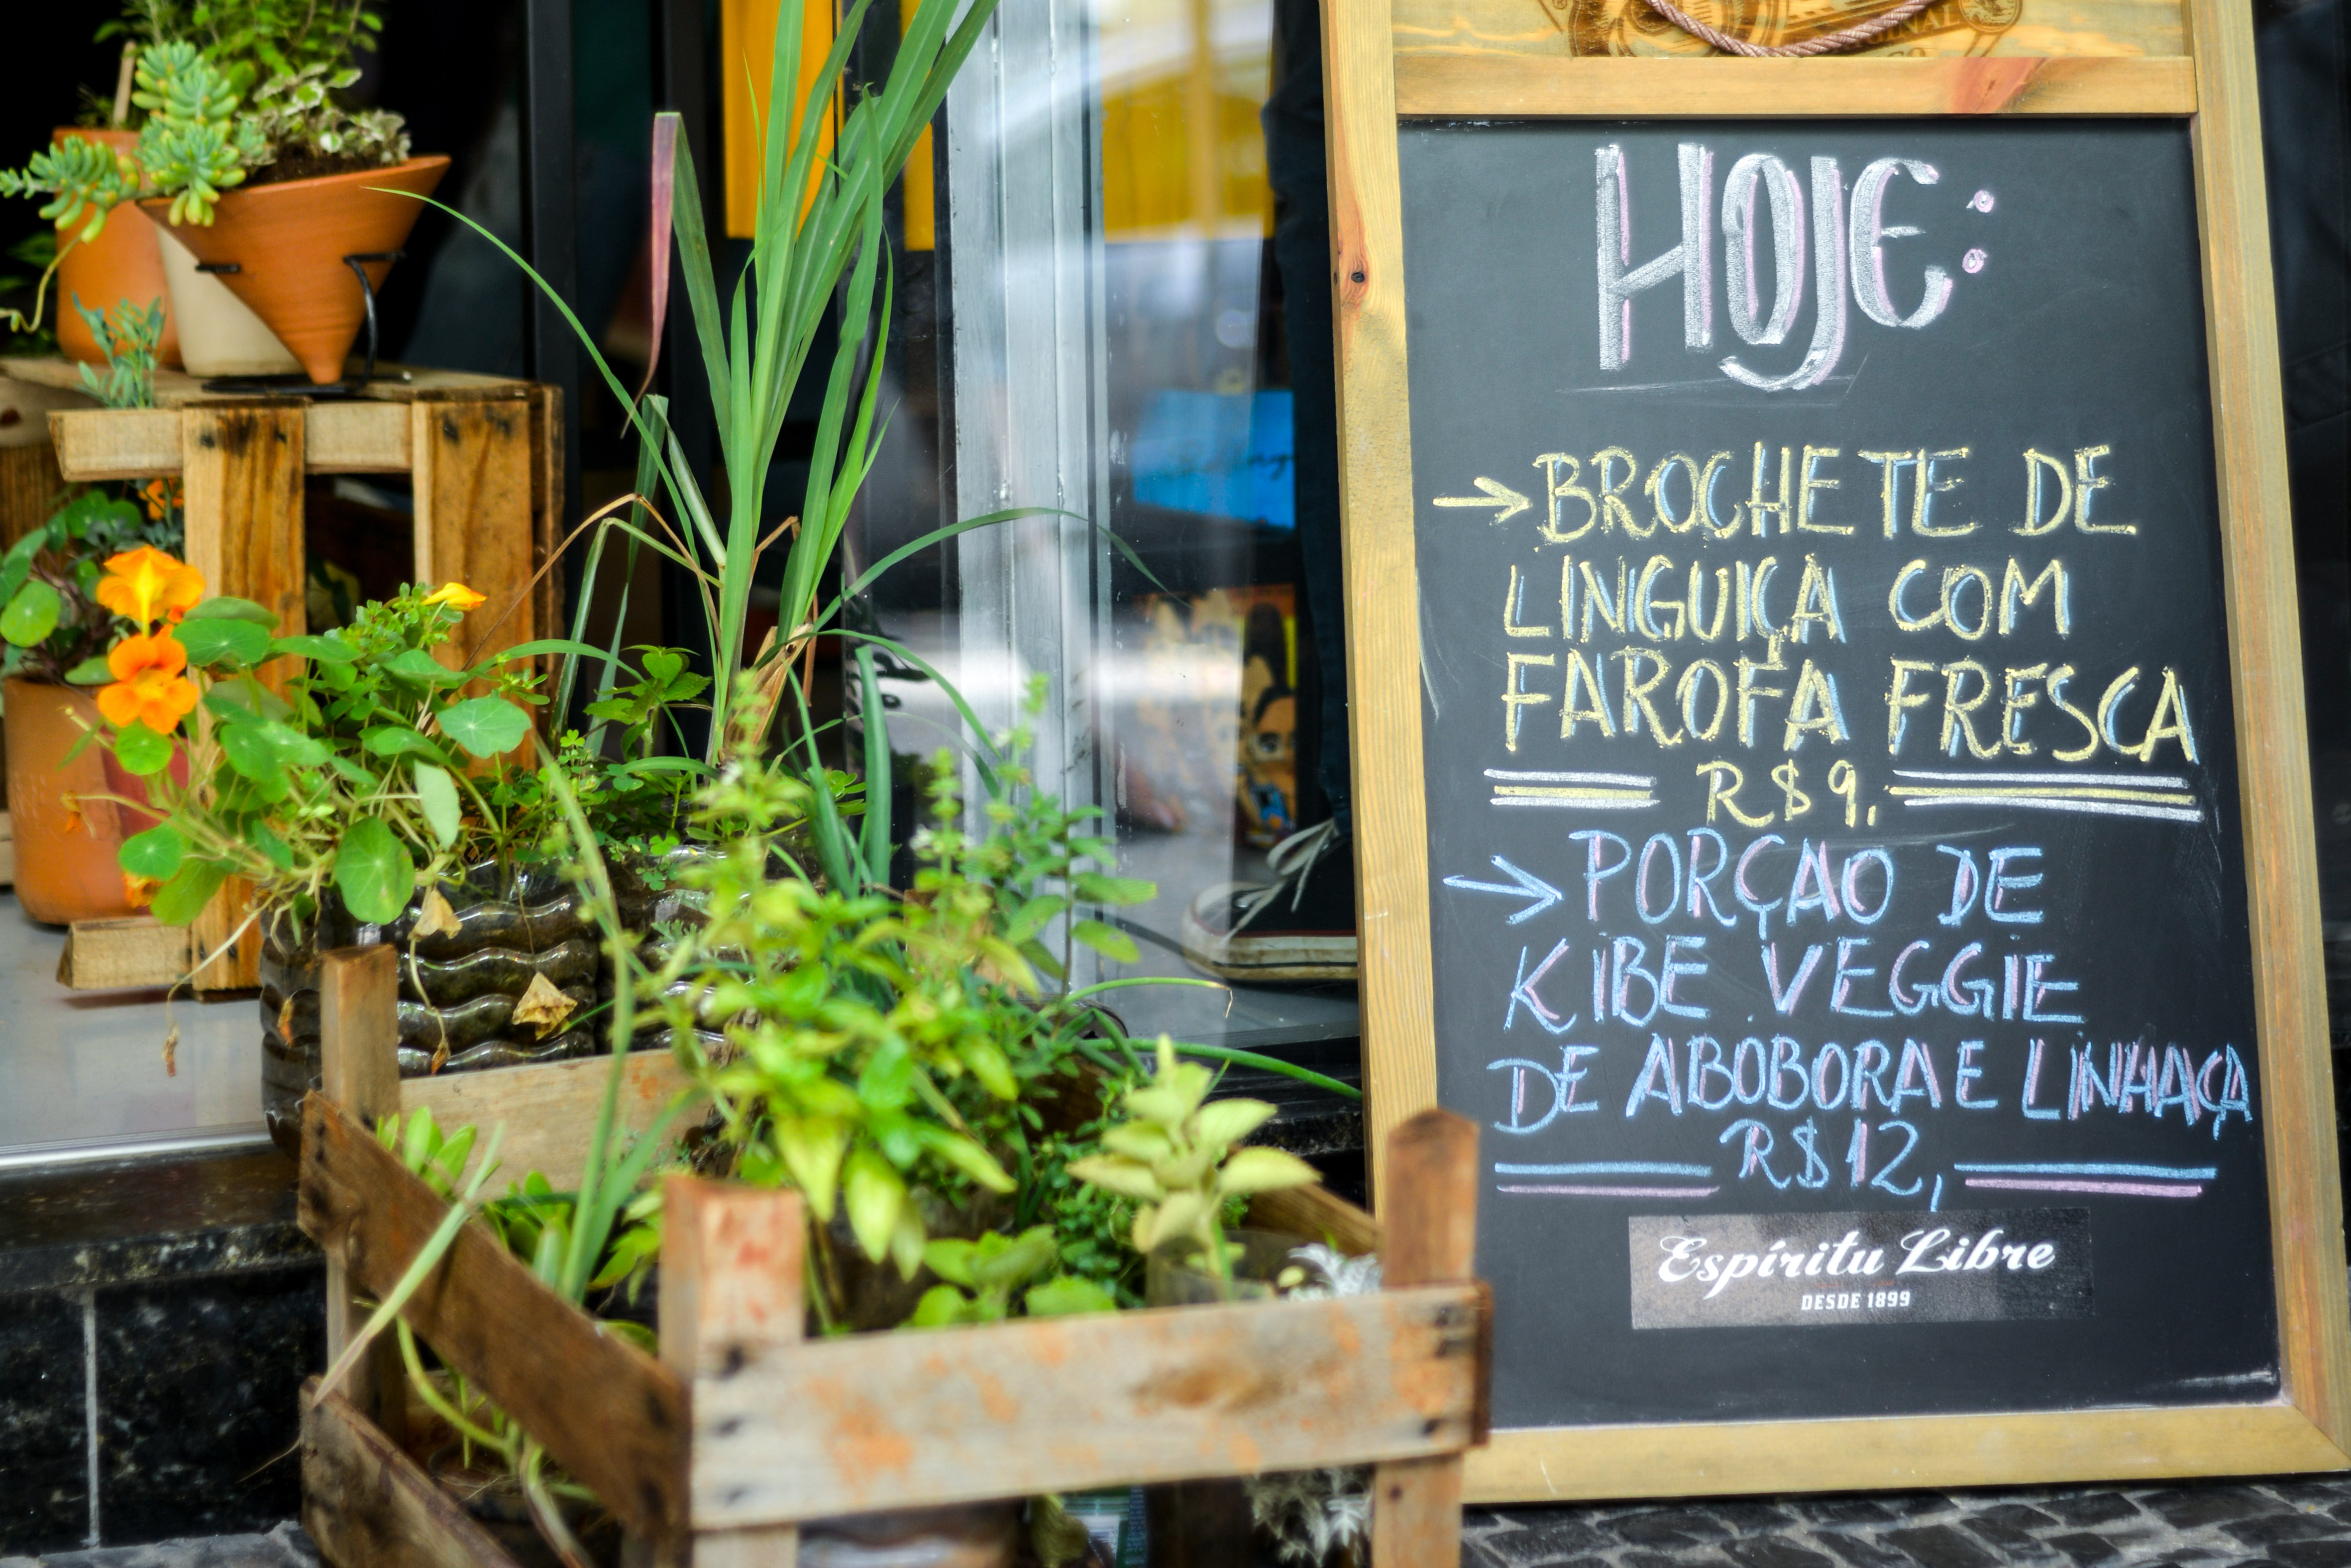 HOJE:
→BROCHETE DE
LINGUIÇA COM
FAROFA FRESCA
R$9,
→PORÇAO DE
KIBE VEGGIE
DE ABOBORA E LINHAÇA
R$12,
Espíritu Libre
DESDE 1899